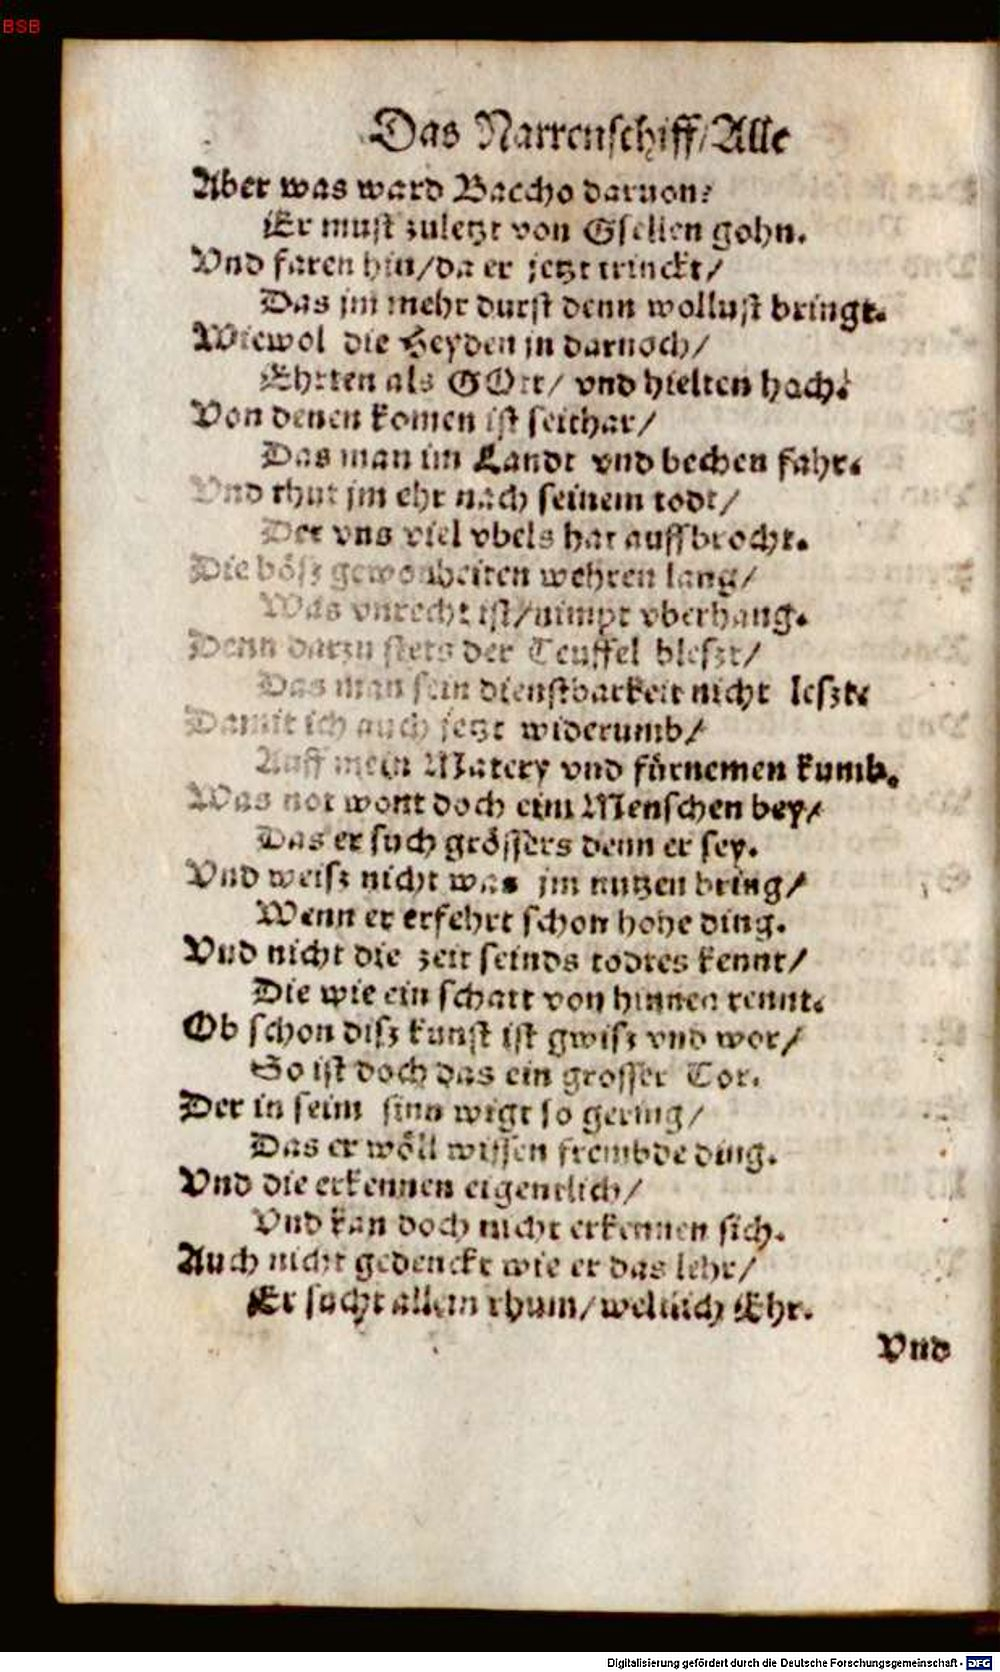 BSB
Das Narrenschiff/Alle
Aber was ward Baccho daruon?
Er must zuletzt von Gsellen gohn.
Vnd faren hin/da er jetzt trinckt/
Das jm mehr durst denn wollust bringt.
Wiewol die Heyden jn darnoch/
Ehrten als GOtt/ vnd hielten hoch.
Von denen komen ist seithar/
Das man im Landt vnd bechen fahr.
Vnd thut jm ehr nach seinem todt/
Der vns viel vbels hat auffbrocht.
Die bösz gewonheiten wehren lang/
Was vnrecht ist/nimpt vberhang.
Denn darzu stets der Teuffel bleszt/
Das man sein dienstbarkeit nicht leszt.
Damit ich auch jetzt widerumb/
Auff mein Matery vnd fürnemen kumb.
Was not wont doch eim Menschen bey/
Das er such grössers denn er sey.
Vnd weisz nicht was jm nutzen bring/
Wenn er erfehrt schon hohe ding.
Vnd nicht die zeit seinds todtes kennt/
Die wie ein schatt von hinnen rennt.
Ob schon disz kunst ist gwisz vnd wor/
So ist doch das ein grosser Tor.
Der in seim sinn wigt so gering/
Das er wöll wissen frembde ding.
Vnd die erkennen eigentlich/
Vnd kan doch nicht erkennen sich.
Auch nicht gedenckt wie er das lehr/
Er sucht allein rhum/weltlich Ehr.
Vnd
Digitalisierung gefördert durch die Deutsche Forschungsgemeinschaft - DFG